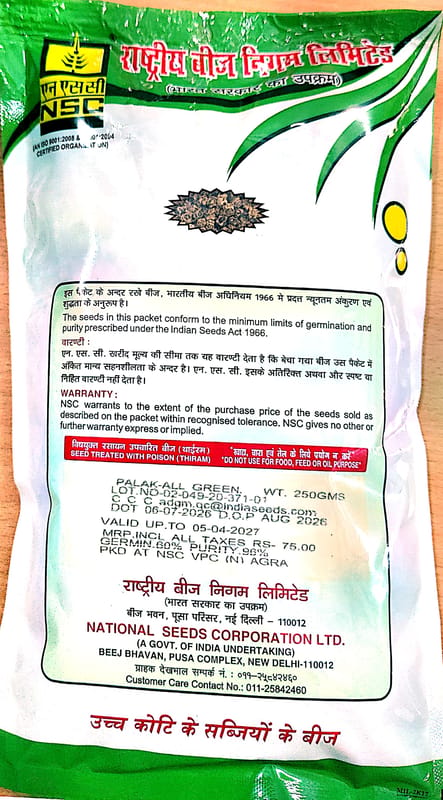 राष्ट्रीय बीज निगम लिमिटेड
(भारत सरकार का उपक्रम)
एन एस सी
NSC
(AN ISO 9001:2008 &
CERTIFIED ORGANIZATION)
इस पैकेट के अन्दर रखे बीज, भारतीय बीज अधिनियम 1966 मे प्रदत्त न्यूनतम अंकुरण एवं
शुद्धता के अनुरूप है।
The seeds in this packet conform to the minimum limits of germination and
purity prescribed under the Indian Seeds Act 1966.
वारण्टी :
एन. एस. सी. खरीद मूल्य की सीमा तक यह वारण्टी देता है कि बेचा गया बीज उस पैकेट में
अंकित मान्य सहनशीलता के अन्दर है। एन. एस. सी. इसके अतिरिक्त अथवा और स्पष्ट या
निहित वारण्टी नहीं देता है।
WARRANTY :
NSC warrants to the extent of the purchase price of the seeds sold as
described on the packet within recognised tolerance. NSC gives no other or
further warranty express or implied.
विषयुक्त रसायन उपचारित बीज (थाईरम) "खाद्य, चारा एवं तेल के लिये प्रयोग न करें"
SEED TREATED WITH POISON (THIRAM) "DO NOT USE FOR FOOD, FEED OR OIL PURPOSE"
PALAK-ALL GREEN, WT. 250GMS
LOT.NO-02-049-20-371-01
C C C adqm.qc@indiaseeds.com
DOT 06-07-2026 D.O.P AUG 2026
VALID UP.TO 05-04-2027
MRP.INCL ALL TAXES RS- 75.00
GERMIN.60% PURITY.96%
PKD AT NSC VPC (N) AGRA
राष्ट्रीय बीज निगम लिमिटेड
(भारत सरकार का उपक्रम)
बीज भवन, पूसा परिसर, नई दिल्ली – 110012
NATIONAL SEEDS CORPORATION LTD.
(A GOVT. OF INDIA UNDERTAKING)
BEEJ BHAVAN, PUSA COMPLEX, NEW DELHI-110012
ग्राहक देखभाल सम्पर्क नं. : ०११-२५८४२४६०
Customer Care Contact No.: 011-25842460
उच्च कोटि के सब्जियों के बीज